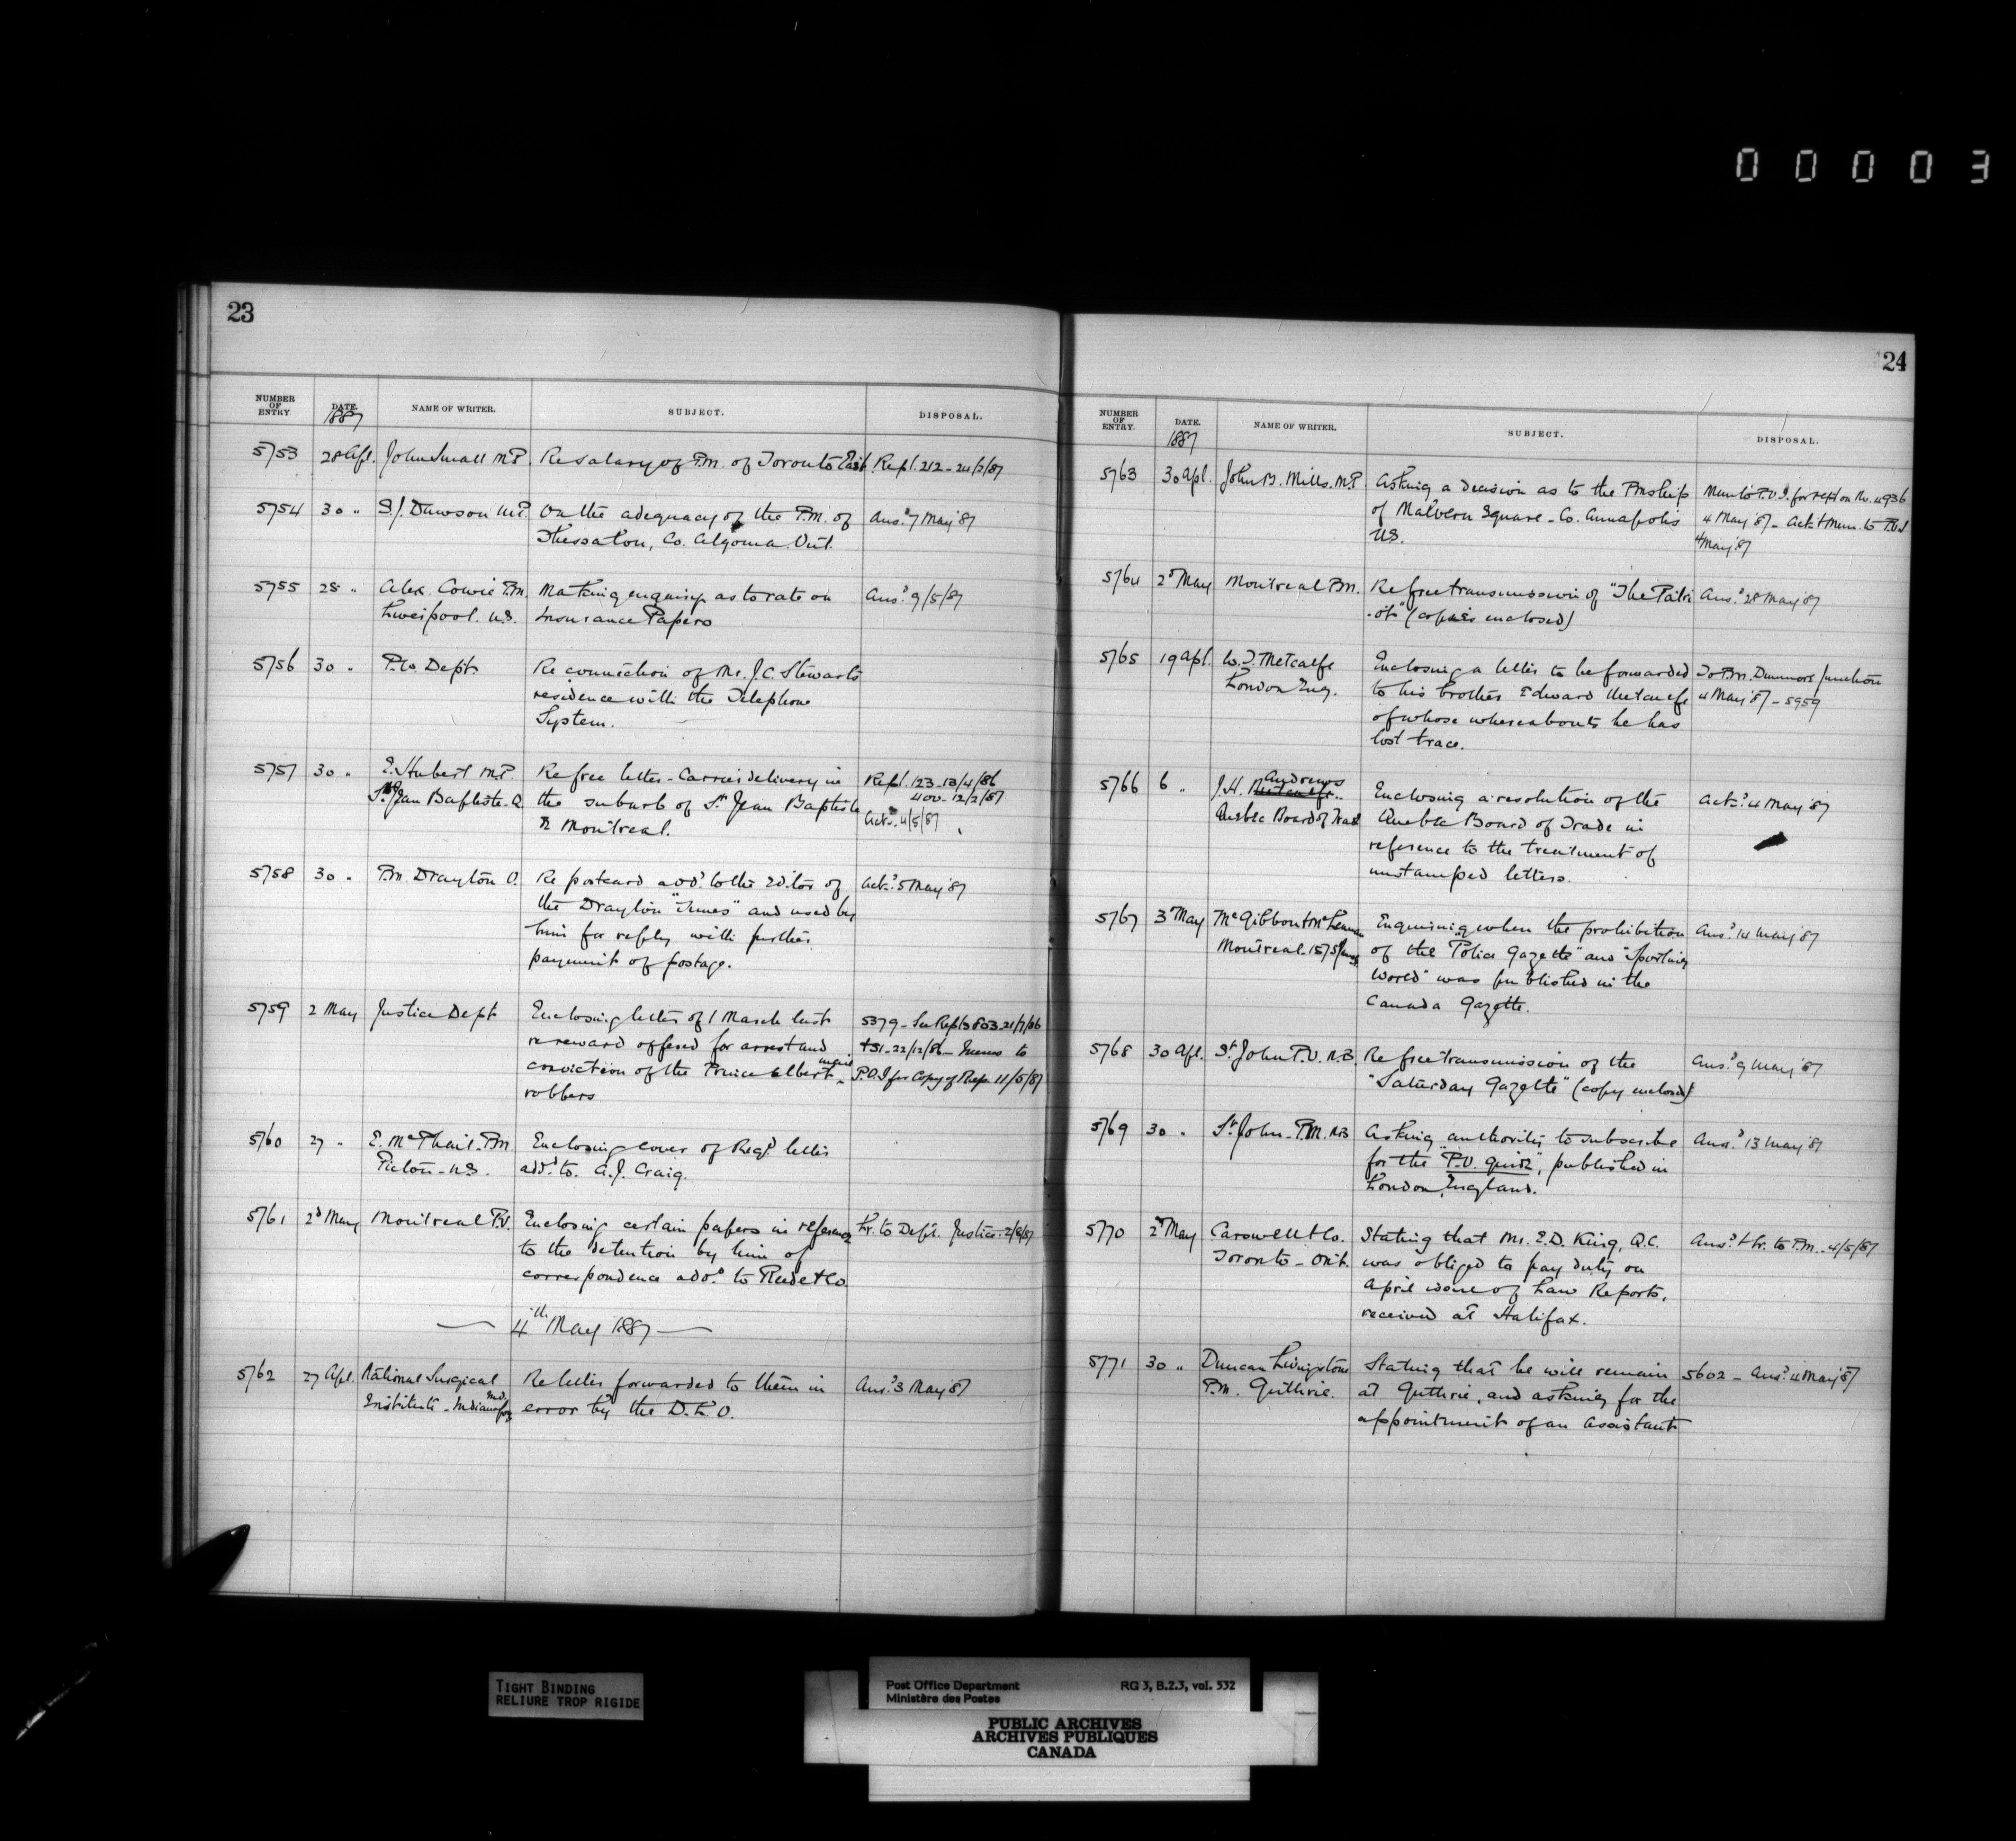 00003
23
NUMBER OF ENTRY. DATE. 1887 NAME OF WRITER. SUBJECT. DISPOSAL.
5753 28 Apl. John Small M.P. Re salary of P.M. of Toronto East. Repl. 212 - 24/2/87
5754 30 " S.J. Dawson M.P. On the adequacy of the P.M. of Ansd 7 May '87
Thessalon, Co. Algoma Ont.
5755 28 " Alex. Cowie P.M. Making enquiry as to rate on Ansd 9/5/87
Liverpool. N.S. Insurance Papers
5756 30 " P.W. Dept. Re connection of Mr. J.C. Stewart's
residence with the Telephone
System.
5757 30 " E. Hubert M.P. Re free letter-Carrier delivery in Repl. 123 - 13/4/86
St Jean Baptiste. Q. the suburb of St Jean Baptiste 400 - 12/2/87
Montreal. Ackd 4/5/87
5758 30 " P.M. Drayton O. Re postcard add to the Editor of Ackd 5 May '87
the Drayton "Times" and used by
him for reply with further
payment of postage.
5759 2 May Justice Dept Enclosing letter of 1 March last 5379 - See Repl 3803 21/7/86
re reward offered for arrest and +51 - 22/12/86 - Memo to
conviction of the Prince Albert mail P.O.I for Copy of Rep. 11/5/87
robbers
5760 27 " E. McPhail. P.M. Enclosing cover of Regd letter
Pictou - N.S. add to A.J. Craig.
5761 2d May Montreal P.O. Enclosing certain papers in reference Lr. to Dept. Justice - 2/6/87
to the detention by him of
correspondence add to Reide & Co.
— 4th May 1887 —
5762 27 Apl. National Surgical Re letter forwarded to them in Ansd 3 May '87
Institute - Indianapolis Ind. error by the D.L.O.
24
NUMBER OF ENTRY. DATE. 1887 NAME OF WRITER. SUBJECT. DISPOSAL.
5763 30 Apl. John B. Mills. M.P. Asking a decision as to the Pmship Mem to P.O.I. for rept on No. 4936
of Malvern Square - Co. Annapolis 4 May '87 - Ack & Mem. to P.O.I
N.S. 4 May '87
5764 2d May Montreal P.M. Re free transmission of "The Patri Ansd 28 May '87
-ot" (copies enclosed)
5765 19 Apl. W.J. Metcalfe Enclosing a letter to be forwarded To P.M. Dunmore Junction
London Eng. to his brother Edward Metcalfe 4 May '87 - 5959
of whose whereabouts he has
lost trace.
5766 6 " J.H. Andrews Enclosing a resolution of the Ackd 4 May '87
Quebec Board of Trade Quebec Board of Trade in
reference to the treatment of
unstamped letters.
5767 3d May McGibbon & McLennan Enquiring when the prohibition Ansd 14 May '87
Montreal - 157 St James of the "Police Gazette" and "Sporting
World" was published in the
Canada Gazette.
5768 30 Apl. St John P.O. N.B. Re free transmission of the Ansd 9 May '87
"Saturday Gazette" (copy enclosed)
5769 30 " St John - P.M. N.B. Asking authority to subscribe Ansd 13 May '87
for the "P.O. Guide", published in
London England.
5770 2d May Carswell & Co. Stating that Mr. E.D. King, Q.C. Ansd & Lr. to P.M. - 4/5/87
Toronto - Ont. was obliged to pay duty on
April issue of Law Reports,
received at Halifax.
5771 30 " Duncan Livingstone Stating that he will remain 5602 - Ansd 4 May '87
P.M. Guthrie. at Guthrie, and asking for the
appointment of an Assistant
TIGHT BINDING
RELIURE TROP RIGIDE
Post Office Department RG 3, B.2.3, vol. 532
Ministère des Postes
PUBLIC ARCHIVES
ARCHIVES PUBLIQUES
CANADA